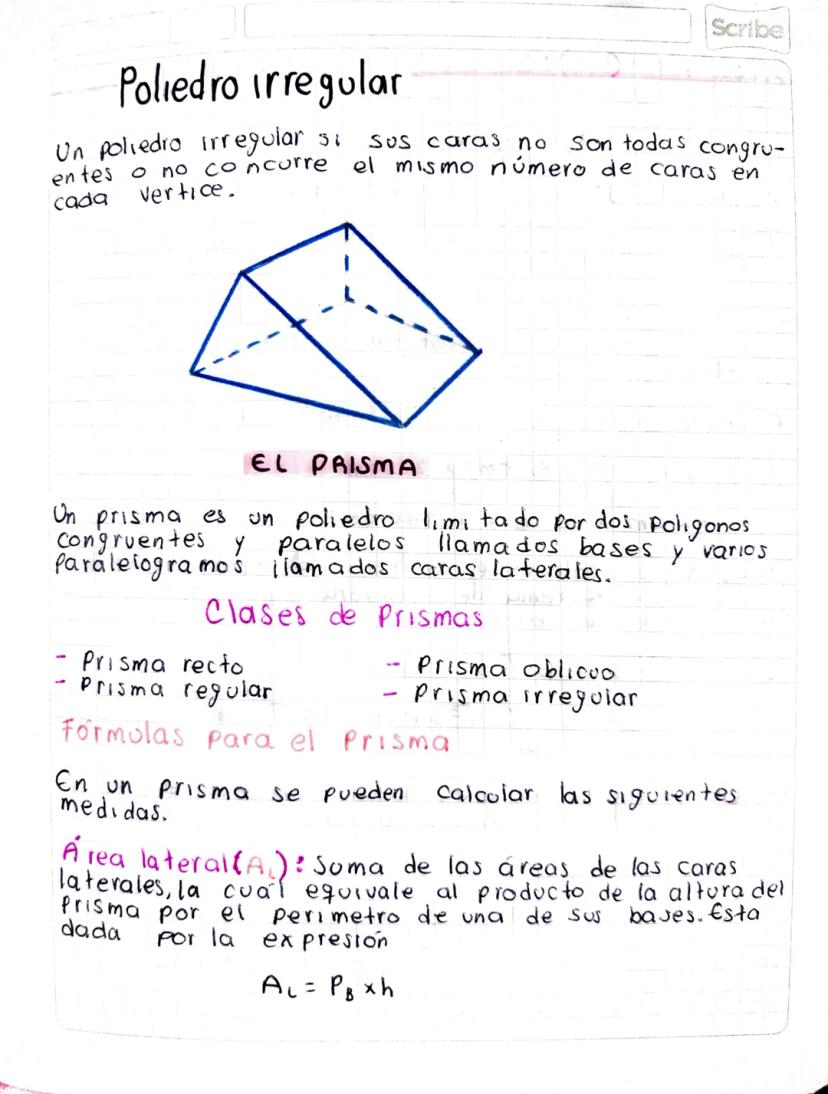 Scribe
Poliedro irregular
Un poliedro irregular si sus caras no son todas congru-
entes o no concurre el mismo número de caras en
cada vertice.
EL PRISMA
Un prisma es un poliedro limitado por dos poligonos
congruentes y paralelos llamados bases y varios
paralelogramos llamados caras laterales.
Clases de Prismas
- Prisma recto - Prisma oblicuo
- Prisma regular - Prisma irregular
Fórmulas para el Prisma
En un prisma se pueden calcular las siguientes
medidas.
Área lateral (A_L): Suma de las áreas de las caras
laterales, la cual equivale al producto de la altura del
Prisma por el perimetro de una de sus bases. Esta
dada por la expresión
A_L = P_B × h